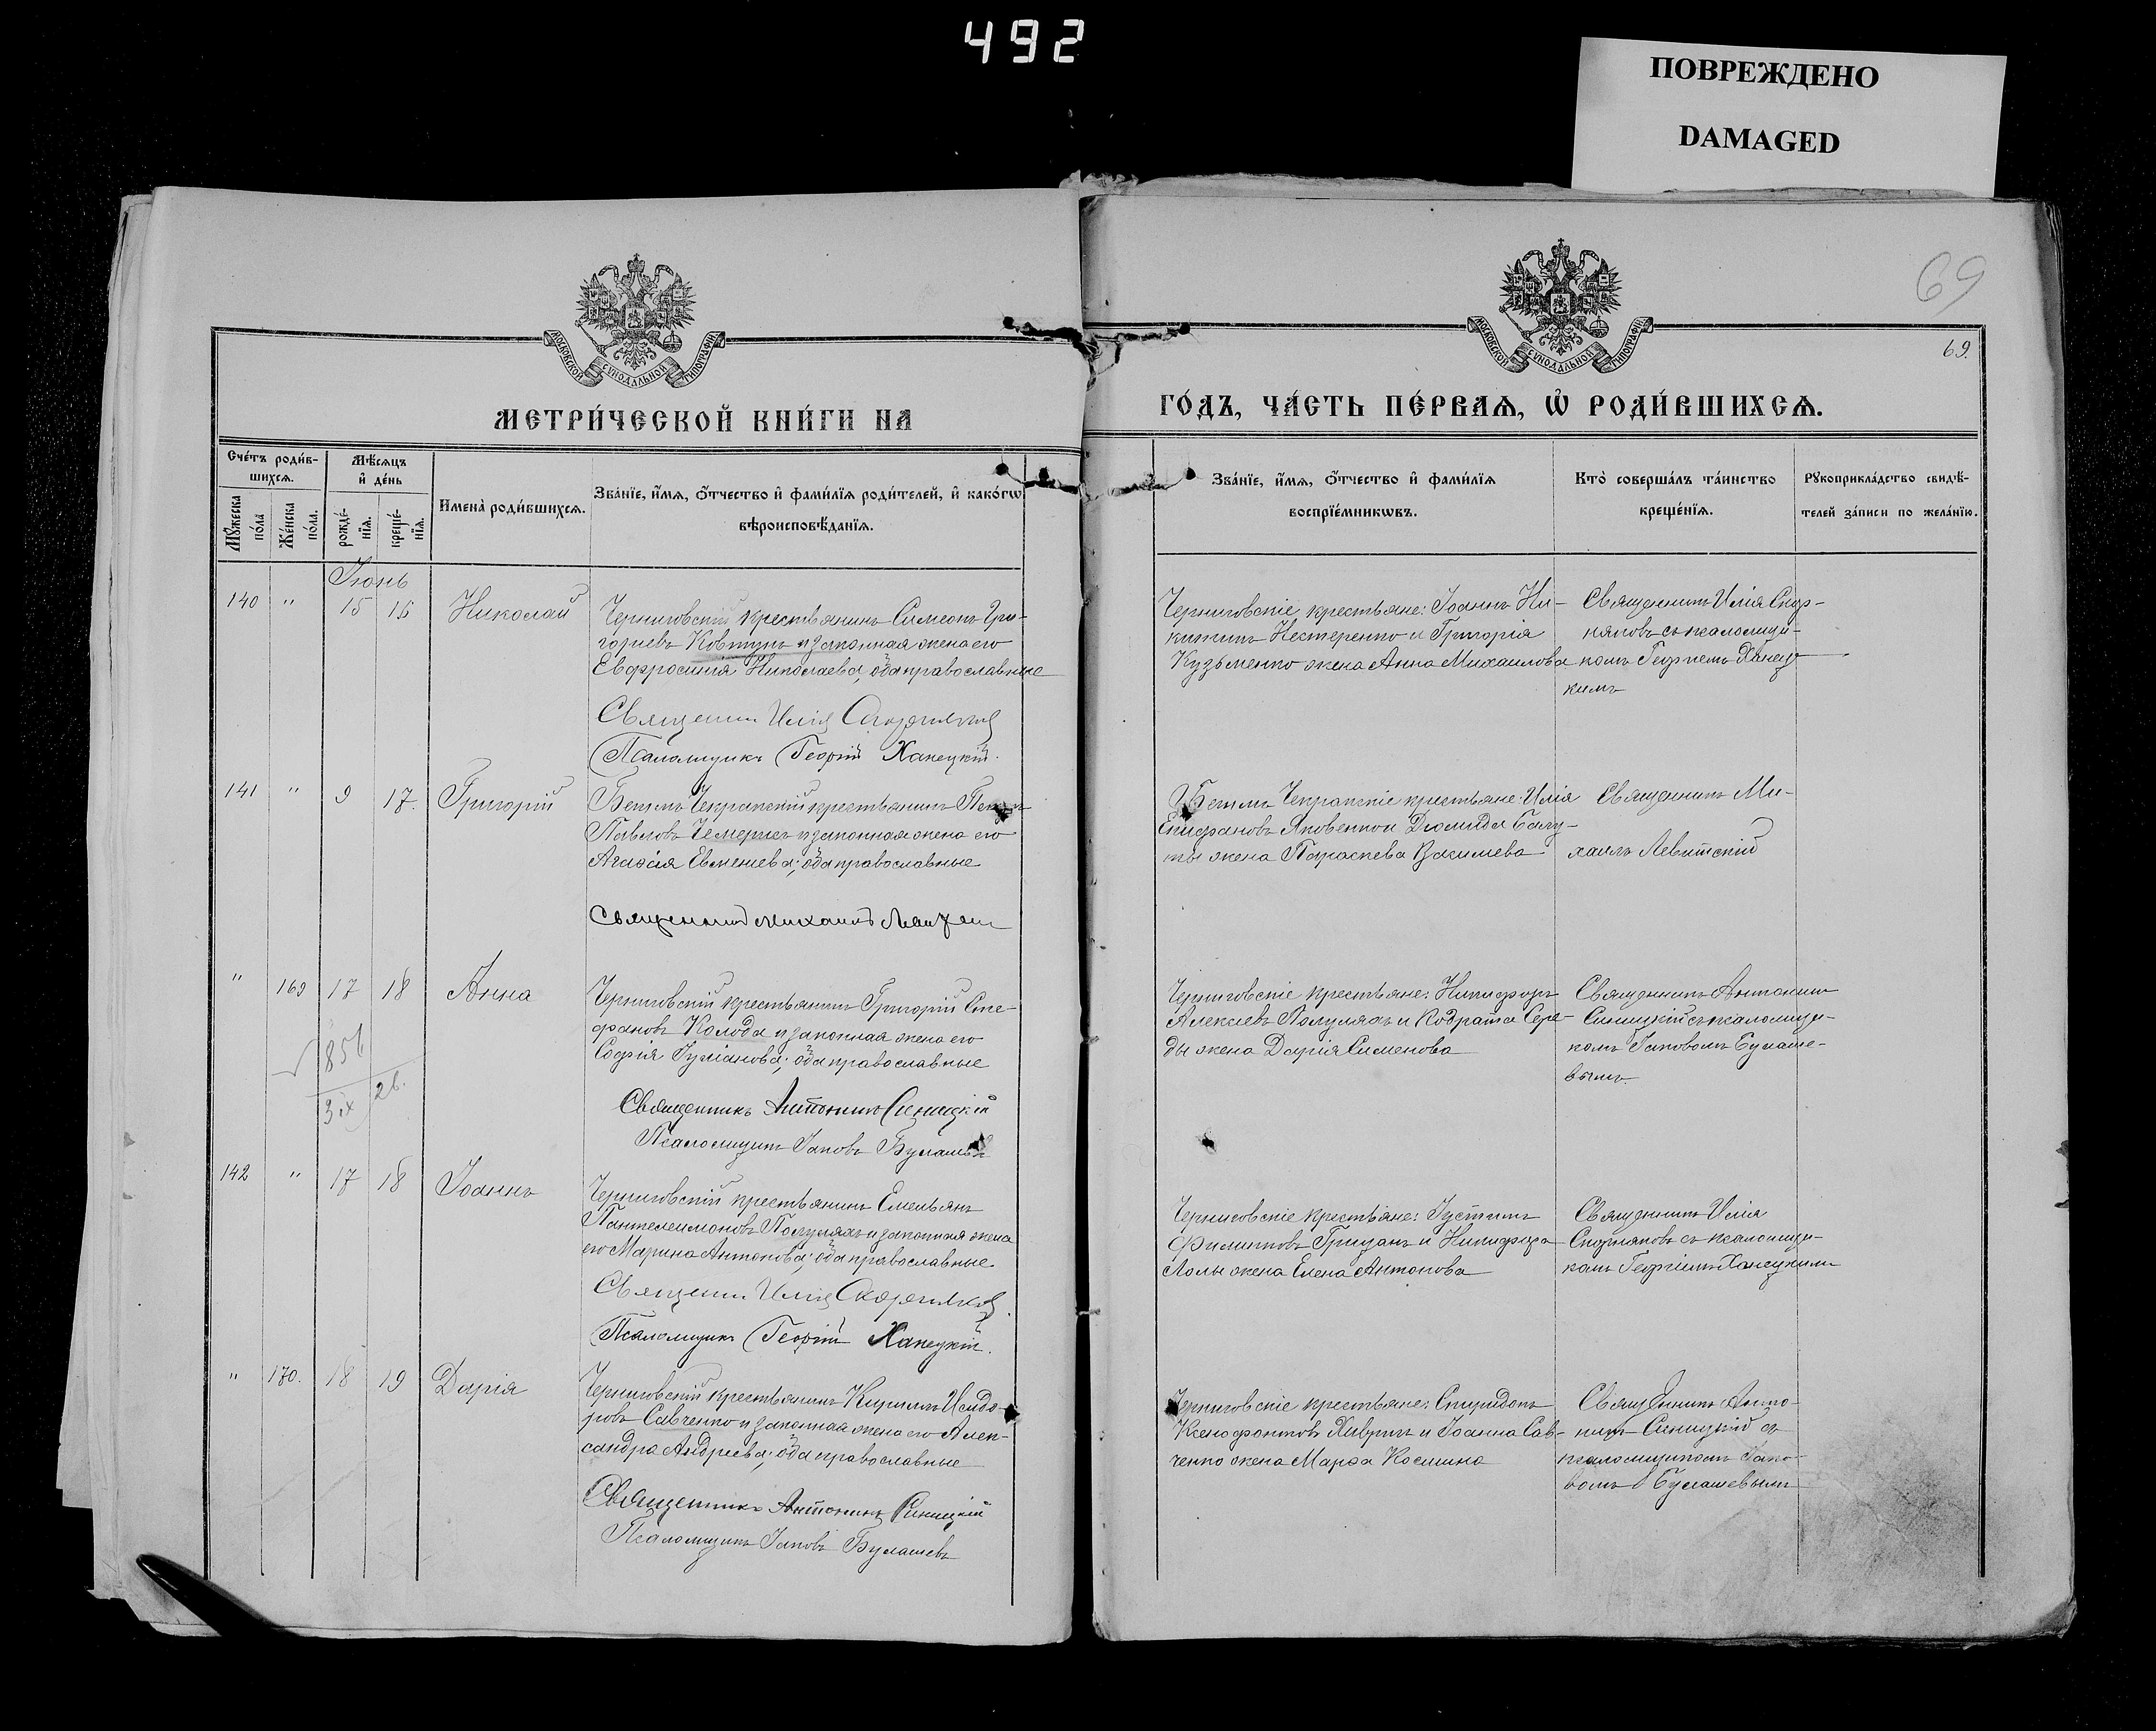 492
ПОВРЕЖДЕНО
DAMAGED
69
69.
МОСКОВСКОЙ СѴНОДАЛЬНОЙ ТИПОГРАФІИ
МОСКОВСКОЙ СѴНОДАЛЬНОЙ ТИПОГРАФІИ
МЕТРИ́ЧЕСКОЙ КНИ́ГИ НА
ГО́ДЪ, ЧА́СТЬ ПЕ́РВАѦ, Ѡ҆ РОДИ́ВШИХСѦ.
Сче́тъ роди́в-
шихсѧ.
Мꙋ́жеска
по́ла
Же́нска
по́ла.
Мѣ́сѧцъ
и҆ де́нь
рожде́-
нїѧ.
креще́-
нїѧ.
И҆мена̀ роди́вшихсѧ.
Зва́нїе, и҆́мѧ, ѻ҆́тчество и҆ фами́лїѧ роди́телей, и҆ како́гѡ
вѣроисповѣ́данїѧ.
Зва́нїе, и҆́мѧ, ѻ҆́тчество и҆ фами́лїѧ
воспрїе́мникѡвъ.
Кто̀ соверша́лъ та́инство
креще́нїѧ.
Рꙋкоприкла́дство свидѣ́-
телей за́писи по жела́нїю.
Іюнь
140 " 15 16 Николай
Черниговскій крестьянинъ Симеонъ Гри-
горіевъ Ковтунъ и законная жена его
Евфросинія Николаева, оба православные
Священникъ Илія Скорняковъ
Псаломщикъ Георгій Ханецкій.
Черниговскіе крестьяне: Іоаннъ Ни-
китинъ Нестеренко и Григорія
Кузьменко жена Анна Михаилова
Священникъ Илія Скор-
няковъ съ псаломщи-
комъ Георгіемъ Ханец-
кимъ
141 " 9 17. Григорій
Бешпъ Чекракскій крестьянинъ
Павловъ Чемерисъ и законная жена его
Агафія Евменіева; оба православные
Священникъ Михаилъ
Бешпъ Чекракскіе крестьяне: Илія
Епифановъ Яковенко и Діомида Балу-
ты жена Параскева Василіева
Священникъ Ми-
хаилъ Левитскій
" 169 17 18 Анна
Черниговскій крестьянинъ Григорій Сте-
фановъ Колода и законная жена его
Софія Іуліанова; оба православные
Священникъ Антонинъ Синицкій
Псаломщикъ Іаковъ Булашевъ
Черниговскіе крестьяне: Никифоръ
Алексіевъ Полуляхъ и Кодрата Сере-
ды жена Дарія Сименова
Священникъ Антонинъ
Синицкій съ псаломщи-
комъ Іаковомъ Булаше-
вымъ.
856
3 ix 26.
142 " 17 18 Іоаннъ
Черниговскій крестьянинъ Емельянъ
Пантелеимоновъ Полуляхъ и законная жена
его Марина Антонова; оба православные.
Священникъ Илія Скорняковъ.
Псаломщикъ Георгій Ханецкій.
Черниговскіе крестьяне: Іустинъ
Филиповъ Гризанъ и Никифора
Лолы жена Елена Антонова
Священникъ Илія
Скорняковъ съ псаломщи-
комъ Георгіемъ Ханецкимъ
" 170. 18 19 Дарія
Черниговскій крестьянинъ Кириллъ Исидо-
ровъ Савченко и законная жена его Алек-
сандра Андреева; оба православные
Священникъ Антонинъ Синицкій
Псаломщикъ Іаковъ Булашевъ
Черниговскіе крестьяне: Спиридонъ
Ксенофонтовъ Хивричъ и Іоанна Сав-
ченко жена Марфа Космина
Священникъ Анто-
нинъ Синицкій съ
псаломщикомъ Іако-
вомъ Булашевымъ